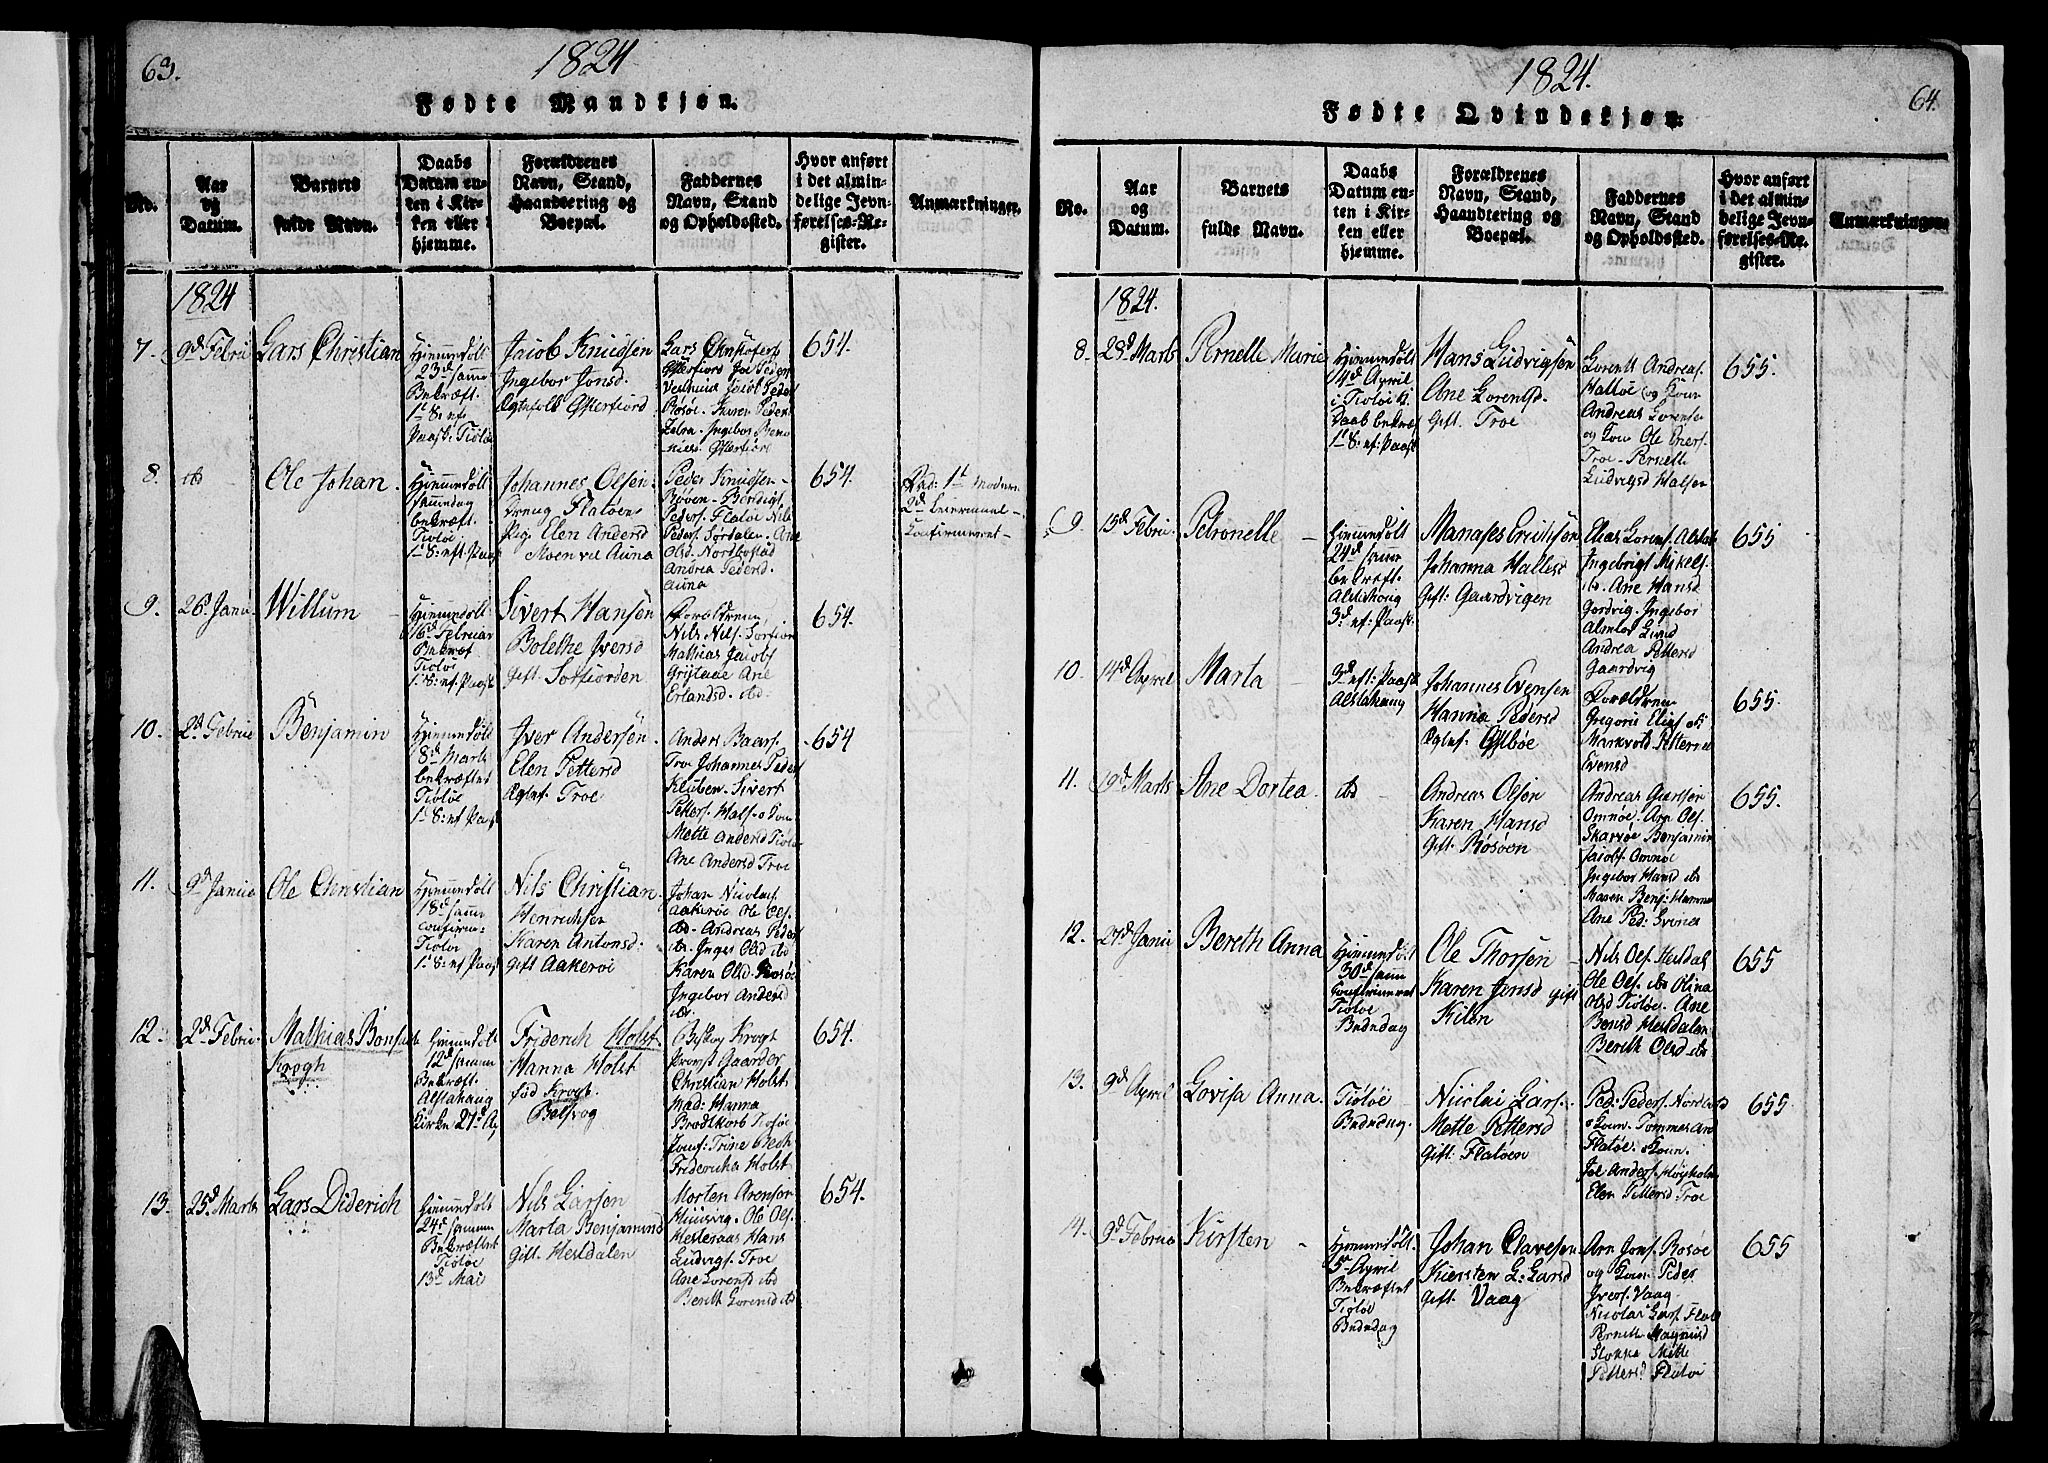 63.
1824
Fødte Mandkjøn.
No.
Aar
og
Datum.
Barnets
fulde Navn.
Daabs
Datum en-
ten i Kir-
ken eller
hjemme.
Forældrenes
Navn, Stand,
Haandtering og
Boepæl.
Faddernes
Navn, Stand
og Opholdssted.
Hvor anført
i det almin-
delige Jevn-
førelses-Re-
gister.
Anmærkninger.
1824
7.
9d Febru
Lars Christian
Hjemmedøbt
23d samme
Bekræft.
1s: 8: ef
Paask: Tiøtøe
Jacob Knudsen
Ingebor Jonsd.
Ægtefolk
654.
8.
Ole Johan
Hjemmedøbt
bekræft.
Tiøtøe
1s: 8: eft Paask
Johannes Olsen
Dreng Flatøen
Pig. Elen Andersd
Moen vel Auna
Peder Knudsen
Røøen
Peders. Flatøe Nils
Olsd. Nordbostad
Andrea Pedersd.
auna
654.
Fad: 1t Moderen
2d Leiermaal
Confirmeret
9.
26d Janu.
Willum
Hjemmedøbt
16d Februar
Bekræf
Tiøtøe
1s: 8: ef Paask
Sivert Hansen
Bolethe Iversd
Gift. Sørfiorden
Forældrene
Nils Nils. Sørfior
Mathias Jacobs
Ane
Erlandsd. ibd.
654.
10.
2d Februe
Benjamin
Hjemmedøbt
8d Marts
bekræftet
Tiøtøe
1s: 8: ef Paask
Iver Andersen
Elen Pettersd
Ægtef. Troe
Anders Baars.
Troe Johannes Peders
Klubben. Sivert
Petters. Hals. o Kon
Mette Andersd Tiøtøe
Ane Andersd Troe
654
11.
9d Janue
Ole Christian
Hjemmedøbt
18d samme
confirm:
Tiøtøe
1s: 8: ef Paask
Nils Christian
Henrichsen
Karen Antonsd.
Gift Aakerøe
Johan Nicolas
Aakerøe Ole Ols.
ibd. Andreas Peders
ibd. Inger Olsd ibd
Karen Olsd. Rosøe
Ingebor Andersd
ibd.
654.
12.
2d Febru.
Mathias Bonsak
Krogh
Hjemmedøbt
12d samme
Bekræft.
Alstahaug
Kirke 27d Ap
Friderich Holst
Hanna Holst
fød Krogh.
Belsvog
Biskop Krogh
Provst Gaarder
Christian Holst
Mad: Hanna
Brodtkorb Tiøtøe
Jomf: Trine Bech
Fridericha Holst
654.
13.
25d Marts
Lars Diderich
Hjemmedøbt
24d samme
Bekræftet
Tiøtøe
13d Mai
Nils Larsen
Marta Benjamind
Gift Hestdalen
Morten Arensen
Husvig. Ole Ols.
Hesteraas Hans
Ludvigs. Troe
Ane Lorensd ibd
Bereth Lorensd ibd
654.
64.
1824.
Fødte Qvindekjøn.
No.
Aar
og
Datum.
Barnets
fulde Navn.
Daabs
Datum en-
ten i Kir-
ken eller
hjemme.
Forældrenes
Navn, Stand,
Haandtering og
Boepæl.
Faddernes
Navn, Stand
og Opholdssted.
Hvor anført
i det almin-
delige Jevn-
førelses-Re-
gister.
Anmærkninger.
1824.
8.
28d Marts
Pernelle Marie
Hjemmedøbt
14d April
i Tiøtøe K.
Daab bekræf
1s 8: ef: Paask
Hans Ludvigsen
Ane Lorentsd.
Gift. Troe
Lorents Andreas.
Halsøe og Kone
Andreas Lorense
og Kone Ole Iners.
Troe Pernelle
Ludvigsd Halsen
655.
9.
15d Febru.
Petronelle
Hjemmedøbt
24d samme
bekræft.
Alstahoug
3d: ef: Paask
Manases Erichsen
Johanna Hallesd
Gift: Gaardvigen
Elias Lorens. Alstah
Ingebrigt Mikels.
ib. Ane Hansd
Gordvig. Ingebor
Andrea Pettersd
Gaardvig
655
10.
14d April
Marta
3d eft: Paask
Alstahaug
Johannes Evensen
Hanna Pedersd
Ægtef.
Forældrene
Gregoris Elias. ok
Markvold. Petterne
Evensd
655.
11.
19d Marts
Ane Dortea.
ibd
Andreas Olsen
Karen Hansd
Gift. Rosøen
Andreas Guttorm
Omnøe. Arn Ols.
Skarvøe Benjamin
Jacobs. Omnøe
Ingebor Hansd ibd
Maren Benj: Hamnø
Ane Ped: Svines
655.
12.
27d Janu
Bereth Anna
Hjemmedøbt
30d samme
Confirmeret
Tiøtøe
Bededag
Ole Thorsen
Karen Jensd Gift
Kilen
Nils Ols. Hestdal
Ole Ols. ibd Olina
Olsd Tiøtøe. Ane
Bensd Hestdalen
Bereth Olsd ibd
655
13.
9d April
Lovisa Anna.
Tiøtøe
Bededag.
Nicolai Lars.
Mette Pettersd
Gift. Flatøen
Ped: Peders. Nordbost
o Kone. Tommas Arn
Flatøe. o Kone.
Joe Anders. Høyholm
Elen Pettersd Troe
655
14.
9d Februe
Kirsten
Hjemmedøbt
5t April
Bekræftet
Tiøtøe
Bededag
Johan Clavesen
Kiersten L: Larsd
Gift. Vaag
Arn Jons. Rosøe
og Kone Peder
Ivers. Vaag
Nicolas Lars. Flat
Pernelle Magnusd
Stokke Mette
Pettersd Flatøe
655